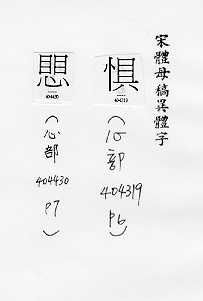 宋體母稿異體字
惧
404319
(心部
404319
P6)
愳
404430
(心部
404430
P7)